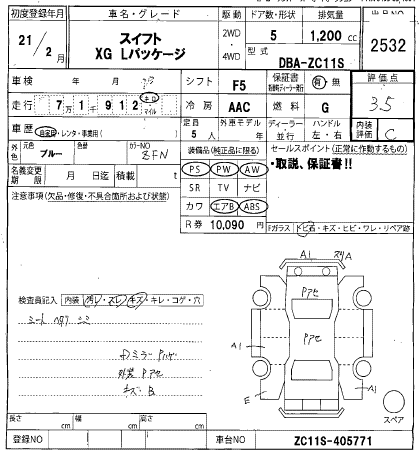 初度登録年月 車名・グレード 駆動 ドア数・形状 排気量
21/2月 スイフト XG Lパッケージ 2WD・4WD 5 1,200 cc 2532
型式 DBA-ZC11S
車検 年 月 シフト F5 保証書 有・無 評価点
走行 7万1千912 キロ マイル 冷房 AAC 燃料 G 3.5
車歴 自家用・レンタ・事業用( ) 定員 5人 外車モデル 年 ディーラー・並行 ハンドル 左・右 内装評価 C
外色 元色 ブルー 色替 カラーNO ZFN
装備品(純正品に限る) セールスポイント(正常に作動するもの)
名義変更期限 月 日迄 積載 t PS PW AW ・取説、保証書!!
注意事項(欠品・修復・不具合箇所および状態) SR TV ナビ
カワ エアB ABS
R券 10,090 円 Fガラス トビ石・キズ・ヒビ・ワレ・リペア跡
A1 A
Pアセ
検査員記入 内装 汚レ・スレ・キズ・キレ・コゲ・穴
シート
Pアセ
A1
ドミラー
外装 Pアセ
キズ B
E A1
スペア
長さ cm 幅 cm 高さ cm
登録NO 車台NO ZC11S-405771